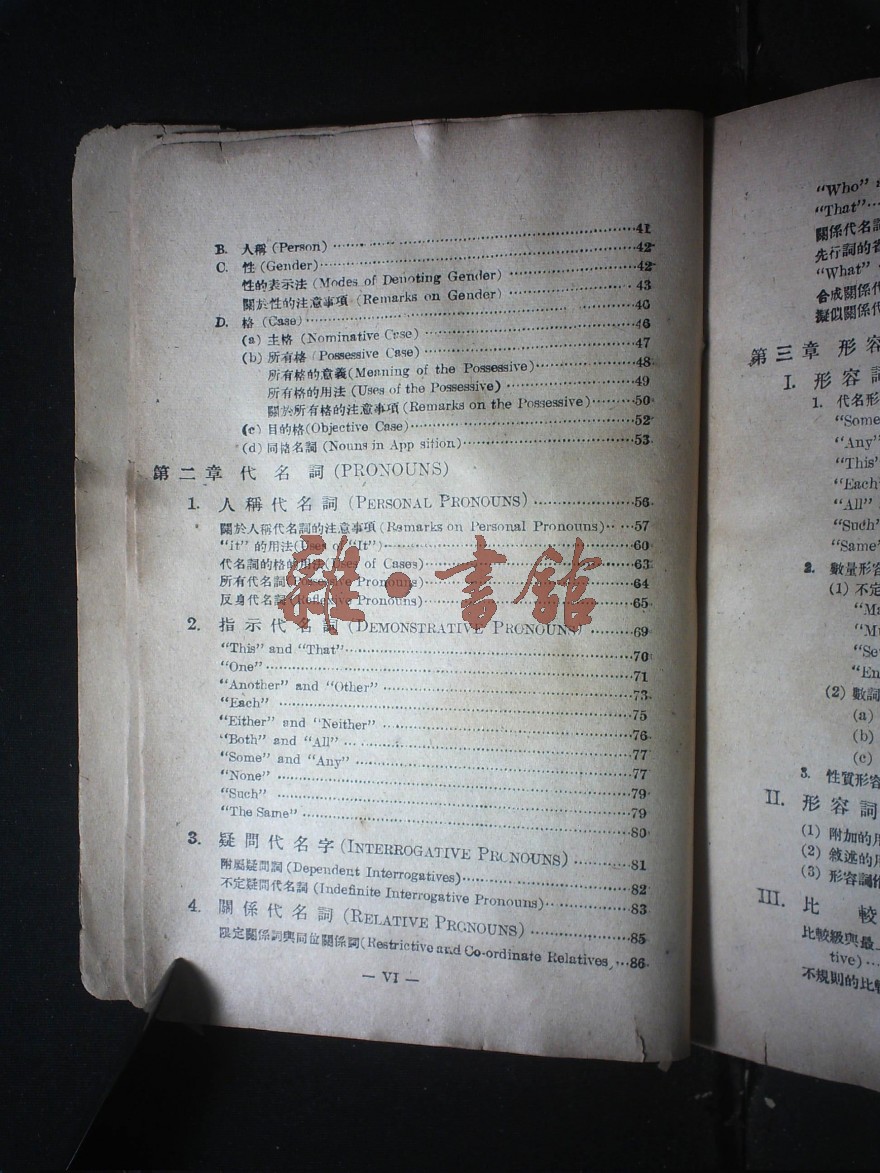 B. 人稱 (Person) ········ 41
C. 性 (Gender) ········ 42
性的表示法 (Modes of Denoting Gender) ········ 42
關於性的注意事項 (Remarks on Gender) ········ 43
D. 格 (Case) ········ 46
(a) 主格 (Nominative Case) ········ 46
(b) 所有格 (Possessive Case) ········ 47
所有格的意義 (Meaning of the Possessive) ········ 48
所有格的用法 (Uses of the Possessive) ········ 49
關於所有格的注意事項 (Remarks on the Possessive) ········ 50
(c) 目的格 (Objective Case) ········ 52
(d) 同格名詞 (Nouns in App sition) ········ 53
第二章 代名詞 (PRONOUNS)
1. 人稱代名詞 (PERSONAL PRONOUNS) ········ 56
關於人稱代名詞的注意事項 (Remarks on Personal Pronouns) ···· 57
"it" 的用法 (Uses of "It") ········ 60
代名詞的格的用法 (Uses of Cases) ········ 63
所有代名詞 (Possessive Pronouns) ········ 64
反身代名詞 (Reflexive Pronouns) ········ 65
雜·書館
2. 指示代名詞 (DEMONSTRATIVE PRONOUNS) ········ 69
"This" and "That" ········ 70
"One" ········ 71
"Another" and "Other" ········ 73
"Each" ········ 75
"Either" and "Neither" ········ 76
"Both" and "All" ········ 77
"Some" and "Any" ········ 77
"None" ········ 79
"Such" ········ 79
"The Same" ········ 80
3. 疑問代名字 (INTERROGATIVE PRONOUNS) ········ 81
附屬疑問詞 (Dependent Interrogatives) ········ 82
不定疑問代名詞 (Indefinite Interrogative Pronouns) ········ 83
4. 關係代名詞 (RELATIVE PRONOUNS) ········ 85
限定關係詞與同位關係詞 (Restrictive and Co-ordinate Relatives) ···86
— VI —
"Who"
"That" ··
關係代名詞
先行詞的
"What"
合成關係代
擬似關係代
第三章 形容
I. 形容詞
1. 代名形
"Some
"Any"
"This"
"Each"
"All"
"Such"
"Same"
2. 數量形容
(1) 不定
"Ma
"Mu
"Se
"En
(2) 數詞
(a)
(b)
(c)
3. 性質形容
II. 形容詞
(1) 附加的用
(2) 敘述的用
(3) 形容詞作
III. 比較
比較級與最
tive) ···
不規則的比較